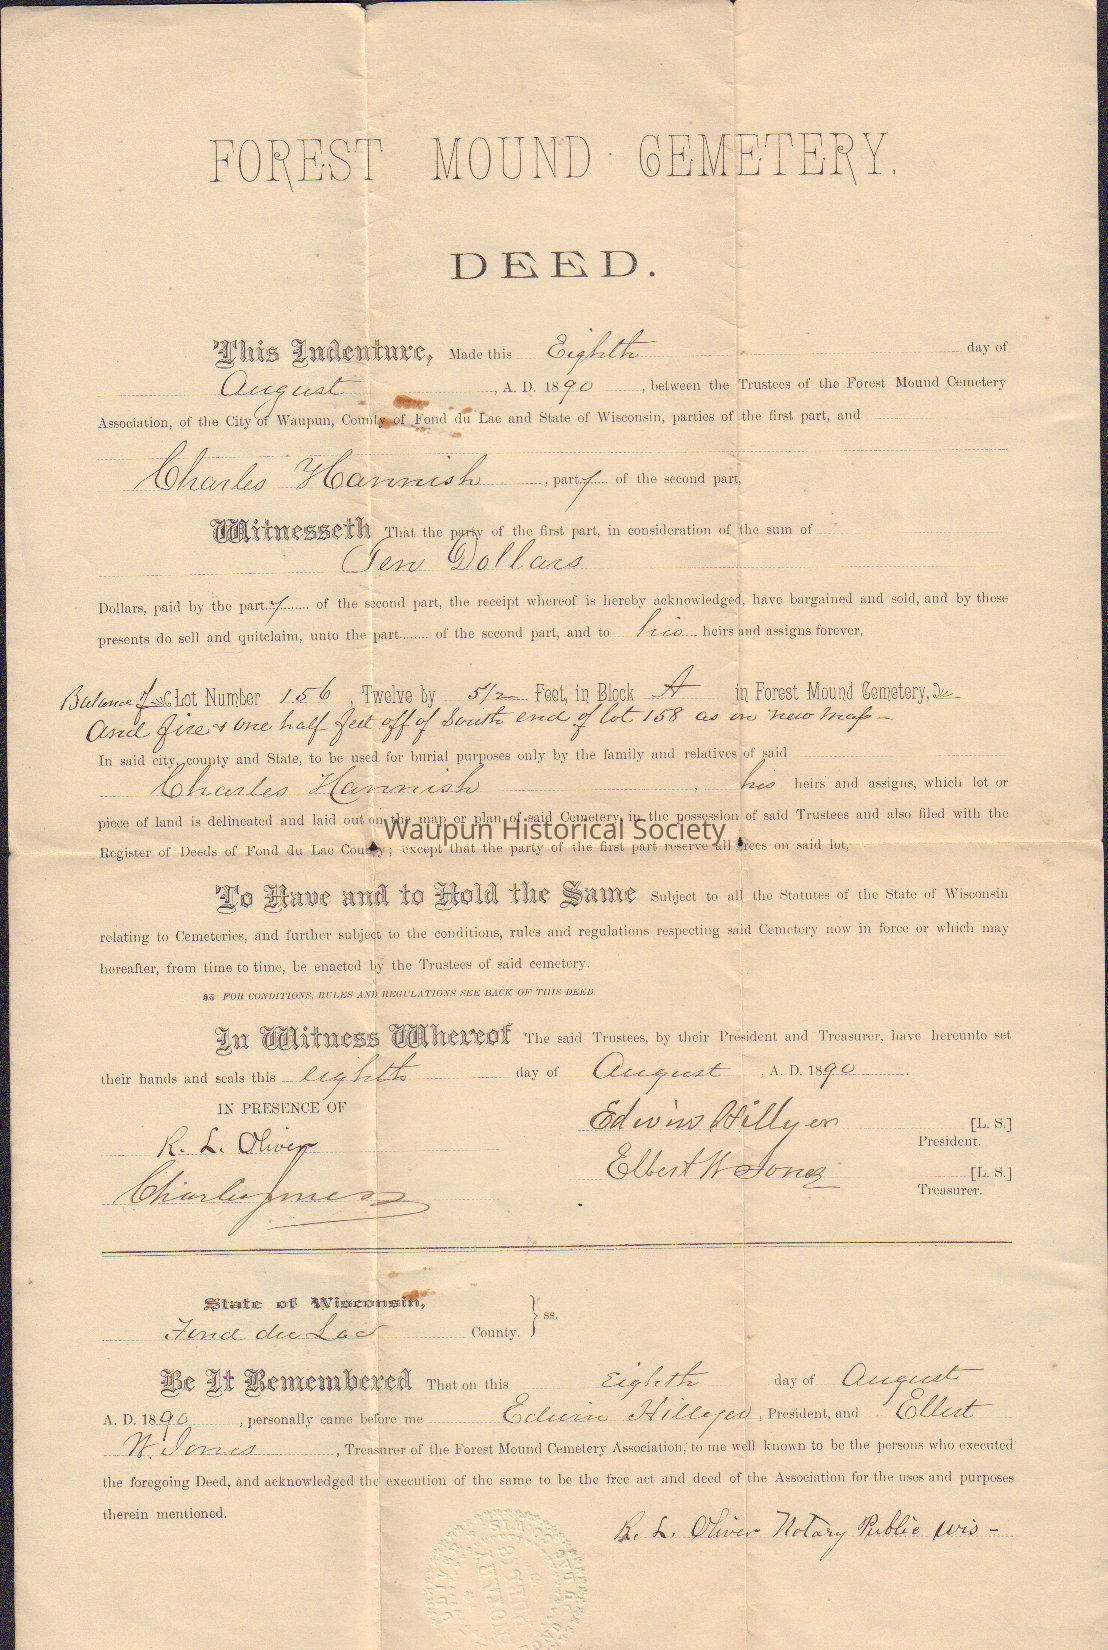 FOREST MOUND CEMETERY.
DEED.
This Indenture, Made this Eighth day of
August, A. D. 1890, between the Trustees of the Forest Mound Cemetery
Association, of the City of Waupun, County of Fond du Lac and State of Wisconsin, parties of the first part, and
Charles Hannish, party of the second part,
Witnesseth That the party of the first part, in consideration of the sum of
Ten Dollars
Dollars, paid by the party of the second part, the receipt whereof is hereby acknowledged, have bargained and sold, and by these
presents do sell and quitclaim, unto the part........ of the second part, and to his heirs and assigns forever,
Balance of Lot Number 156, Twelve by 5 1/2 Feet, in Block A in Forest Mound Cemetery,
And five & one half feet off of South end of lot 158 as on new map -
In said city, county and State, to be used for burial purposes only by the family and relatives of said
Charles Hannish, his heirs and assigns, which lot or
piece of land is delineated and laid out on the map or plan of said Cemetery in the possession of said Trustees and also filed with the
Waupun Historical Society
Register of Deeds of Fond du Lac County; except that the party of the first part reserve all trees on said lot,
To Have and to Hold the Same Subject to all the Statutes of the State of Wisconsin
relating to Cemeteries, and further subject to the conditions, rules and regulations respecting said Cemetery now in force or which may
hereafter, from time to time, be enacted by the Trustees of said cemetery.
FOR CONDITIONS, RULES AND REGULATIONS SEE BACK OF THIS DEED.
In Witness Whereof The said Trustees, by their President and Treasurer, have hereunto set
their hands and seals this eighth day of August, A. D. 1890
IN PRESENCE OF
Edwin Hillyer [L. S.]
President.
R. L. Oliver
Elbert W Jones [L. S.]
Treasurer.
State of Wisconsin,
Fond du Lac County. } ss.
Be It Remembered That on this Eighth day of August
A. D. 1890, personally came before me Edwin Hillyer, President, and Elbert
W. Jones, Treasurer of the Forest Mound Cemetery Association, to me well known to be the persons who executed
the foregoing Deed, and acknowledged the execution of the same to be the free act and deed of the Association for the uses and purposes
therein mentioned.
R. L. Oliver Notary Public Wis -